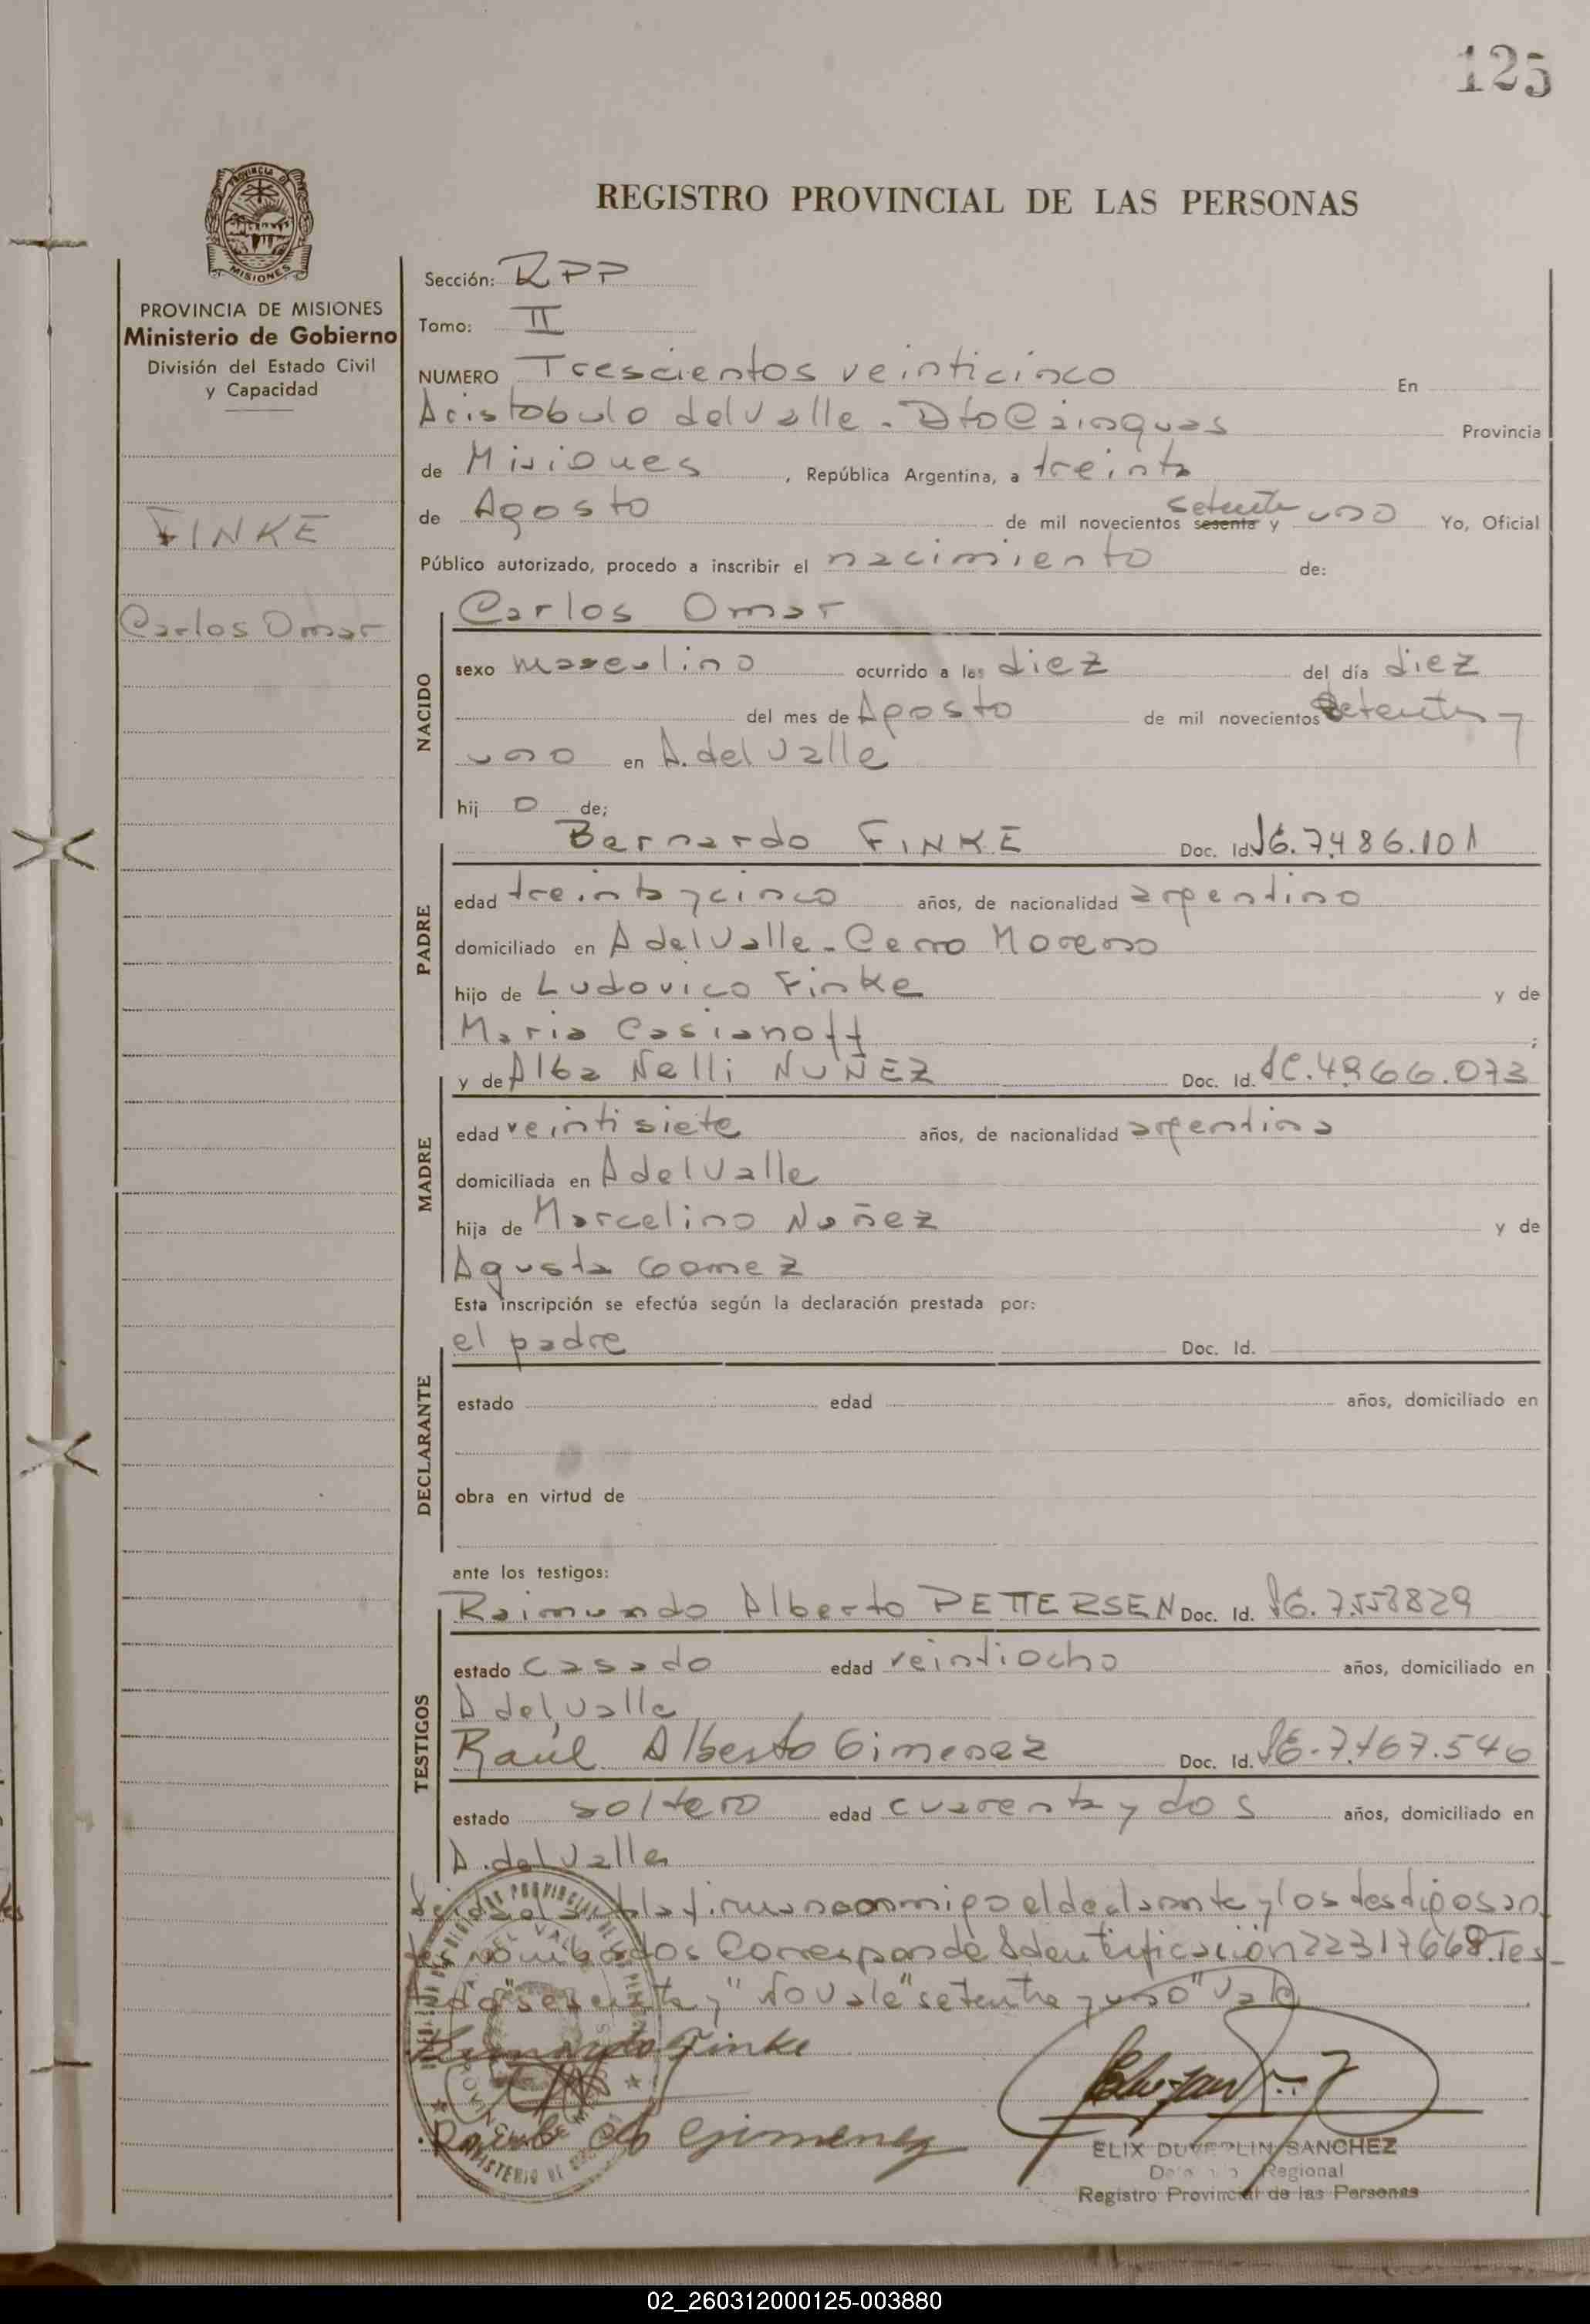 125
REGISTRO PROVINCIAL DE LAS PERSONAS
PROVINCIA DE MISIONES
Ministerio de Gobierno
División del Estado Civil
y Capacidad
FINKE
Carlos Omar
Sección: RPP
Tomo: II
NUMERO Trescientos veinticinco En
Aristobulo del Valle - Dto Cainguas Provincia
de Misiones, República Argentina, a treinta
de Agosto de mil novecientos sesenta setenta y uno Yo, Oficial
Público autorizado, procedo a inscribir el nacimiento de:
NACIDO
Carlos Omar
sexo masculino ocurrido a las diez del día diez
del mes de Agosto de mil novecientos setenta y
uno en A. del Valle
hij o de;
PADRE
Bernardo FINKE Doc. Id. 7.486.101
edad treinta y cinco años, de nacionalidad argentino
domiciliado en A del Valle - Cerro Moreno
hijo de Ludovico Finke y de
Maria Casianoff;
MADRE
y de Alba Nelli NUÑEZ Doc. Id. 4.966.073
edad veintisiete años, de nacionalidad argentina
domiciliada en A del Valle
hija de Marcelino Nuñez y de
Agusta Gomez
DECLARANTE
Esta inscripción se efectúa según la declaración prestada por:
el padre Doc. Id.
estado edad años, domiciliado en
obra en virtud de
TESTIGOS
ante los testigos:
Raimundo Alberto PETTERSEN Doc. Id. 7.558829
estado casado edad veintiocho años, domiciliado en
A del Valle
Raúl Alberto Gimenez Doc. Id. 7.167.546
estado soltero edad cuarenta y dos años, domiciliado en
A. del Valle
Leida el acta la firman conmigo el declarante y los testigos an
tes nombrados Corresponde Identificación 22317668. Tes_
tado "sesenta y" No vale "setenta y uno" Vale
Bernardo Finke
Raúl A Gimenez
ELIX DUVERLIN SANCHEZ
Regional
Registro Provincial de las Personas
02_260312000125-003880